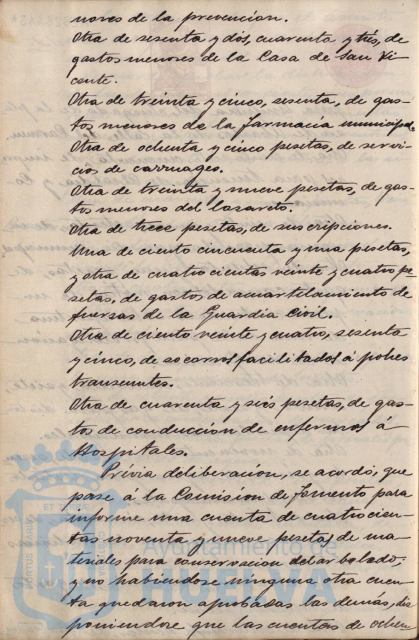 nores de la prevencion.
Otra de sesenta y dos, cuarenta y tres, de
gastos menores de la Casa de San Vi
cente.
Otra de treinta y cinco, sesenta, de gas-
tos menores de la farmacia municipal.
Otra de ochenta y cinco pesetas, de servi-
cios de carruages.
Otra de treinta y nueve pesetas, de gas-
tos menores del lazareto.
Otra de trece pesetas, de suscripciones.
Una de ciento cincuenta y una pesetas,
y otra de cuatrocientas veinte y cuatro pe-
setas, de gastos de acuartelamiento de
fuerzas de la Guardia Civil.
Otra de ciento veinte y cuatro, sesenta
y cinco, de socorros facilitados á pobres
transeuntes.
Otra de cuarenta y seis pesetas, de gas-
tos de conducción de enfermos á
Hospitales.
Prévia deliberación, se acordó, que
pase á la Comision de Fomento para
informe una cuenta de cuatrocien-
tas noventa y nueve pesetas de ma-
teriales para conservacion del arbolado;
y no habiendose ninguna otra cuen-
ta quedaron aprobadas las demás, dis
poniendose que las cuentas de ochen
Ayuntamiento de
HUELVA